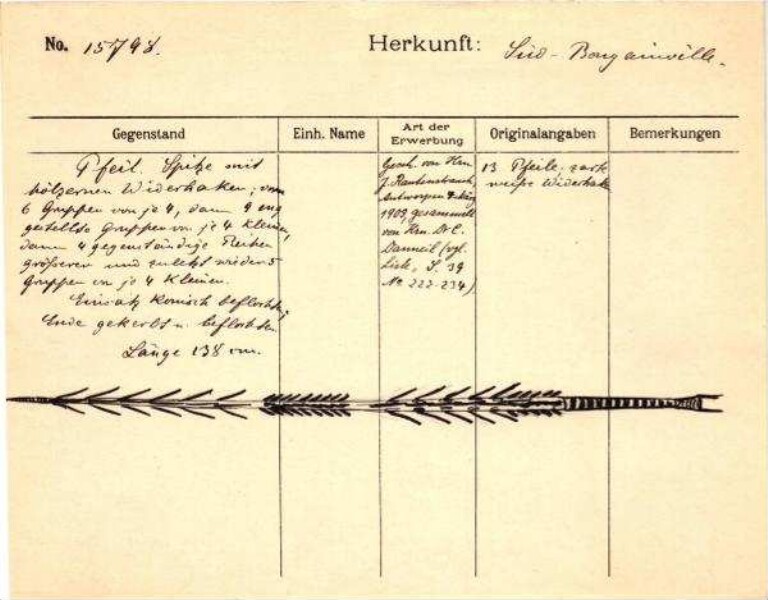 No. 15798.
Herkunft: Süd-Bougainville.
Gegenstand
Einh. Name
Art der
Erwerbung
Originalangaben
Bemerkungen
Pfeil. Spitze mit
hölzernen Widerhaken; vorn
6 Gruppen von je 4, dann 9 eng
gestellte Gruppen von je 4 kleinen,
dann 4 gegenständige Reihen
größerer und zuletzt wieder 5
Gruppen von je 4 kleinen.
Einsatz konisch beflochten;
Ende gekerbt u. beflochten.
Länge 138 cm.
Gesch. von Hrn
J. Rautenstrauch,
Antwerpen
1903, gesammelt
von Hrn. Dr C.
Danneil (vgl.
Liste, S. 39
No 222-234)
13 Pfeile,
weiße Widerhak